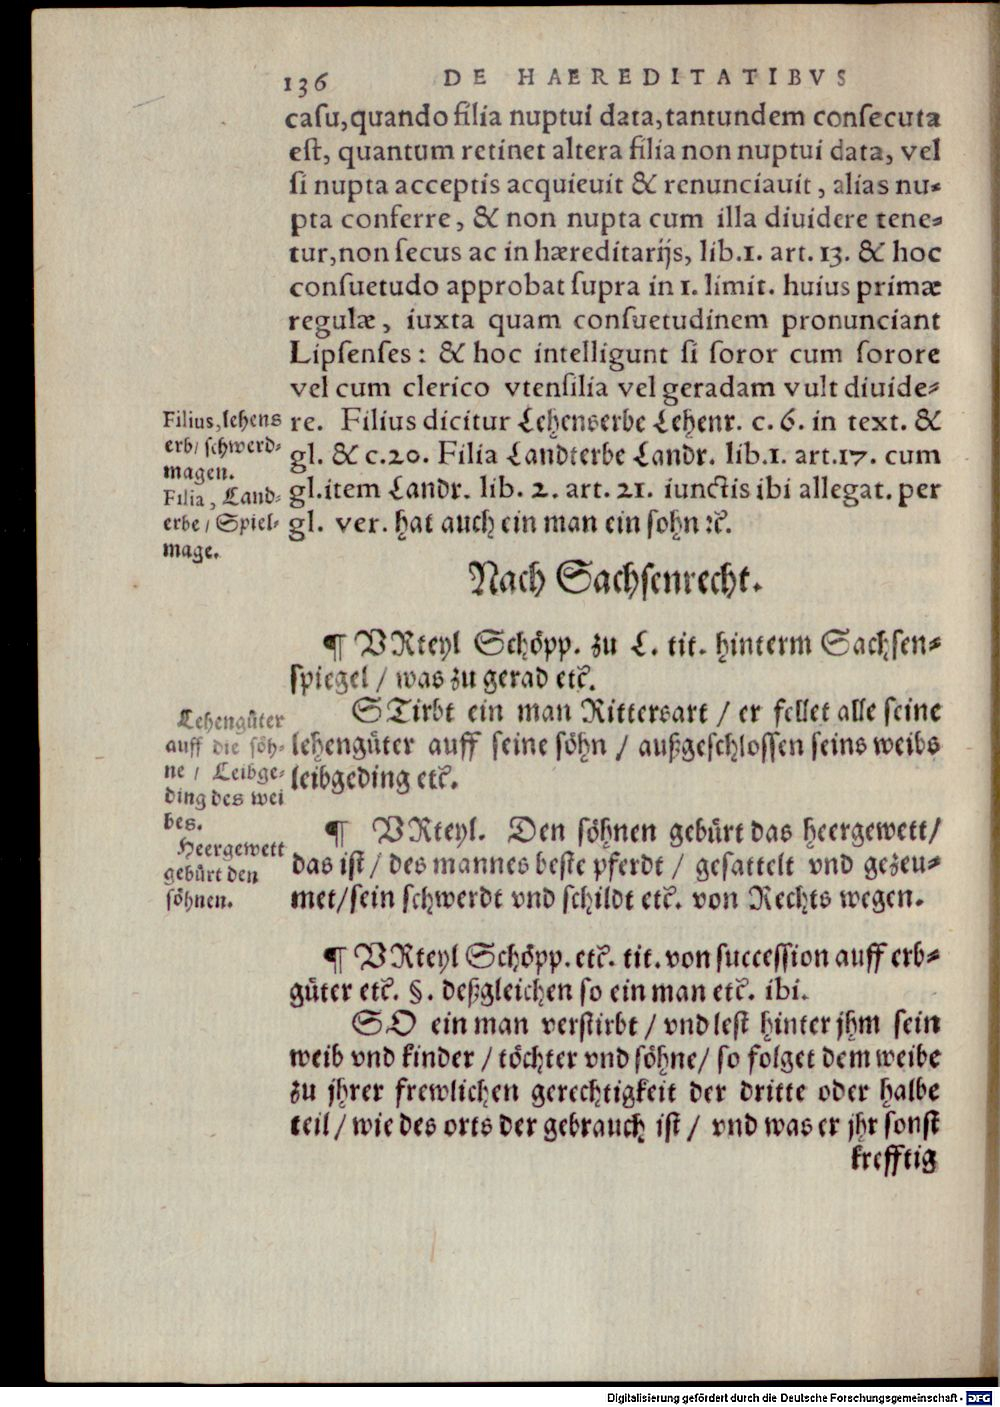 136 DE HAEREDITATIBVS
casu, quando filia nuptui data, tantundem consecuta
est, quantum retinet altera filia non nuptui data, vel
si nupta acceptis acquieuit & renunciauit, alias nu-
pta conferre, & non nupta cum illa diuidere tene-
tur, non secus ac in hæreditarijs, lib.1. art. 13. & hoc
consuetudo approbat supra in 1. limit. huius primæ
regulæ, iuxta quam consuetudinem pronunciant
Lipsenses: & hoc intelligunt si soror cum sorore
vel cum clerico vtensilia vel geradam vult diuide-
re. Filius dicitur Lehenserbe Lehenr. c. 6. in text. &
gl. & c.20. Filia Landterbe Landr. lib.1. art.17. cum
gl. item Landr. lib. 2. art. 21. iunctis ibi allegat. per
gl. ver. hat auch ein man ein sohn ꝛc.
Filius, lehens
erb/ schwerd-
magen.
Filia, Land-
erbe/ Spiel-
mage.
Nach Sachsenrecht.
¶ VRteyl Schöpp. zu L. tit. hinterm Sachsen-
spiegel / was zu gerad etc.
STirbt ein man Rittersart / er fellet alle seine
lehengüter auff seine söhn / außgeschlossen seins weibs
leibgeding etc.
Lehengüter
auff die söh-
ne / Leibge-
ding des wei
bes.
¶ VRteyl. Den söhnen gebürt das heergewett/
das ist / des mannes beste pferdt / gesattelt vnd gezeu-
met/ sein schwerdt vnd schildt etc. von Rechts wegen.
Heergewett
gebürt den
söhnen.
¶ VRteyl Schöpp. etc. tit. von succession auff erb-
güter etc. §. deßgleichen so ein man etc. ibi.
SO ein man verstirbt / vnd lest hinter jhm sein
weib vnd kinder / töchter vnd söhne/ so folget dem weibe
zu jhrer frewlichen gerechtigkeit der dritte oder halbe
teil / wie des orts der gebrauch ist / vnd was er jhr sonst
krefftig
Digitalisierung gefördert durch die Deutsche Forschungsgemeinschaft - DFG